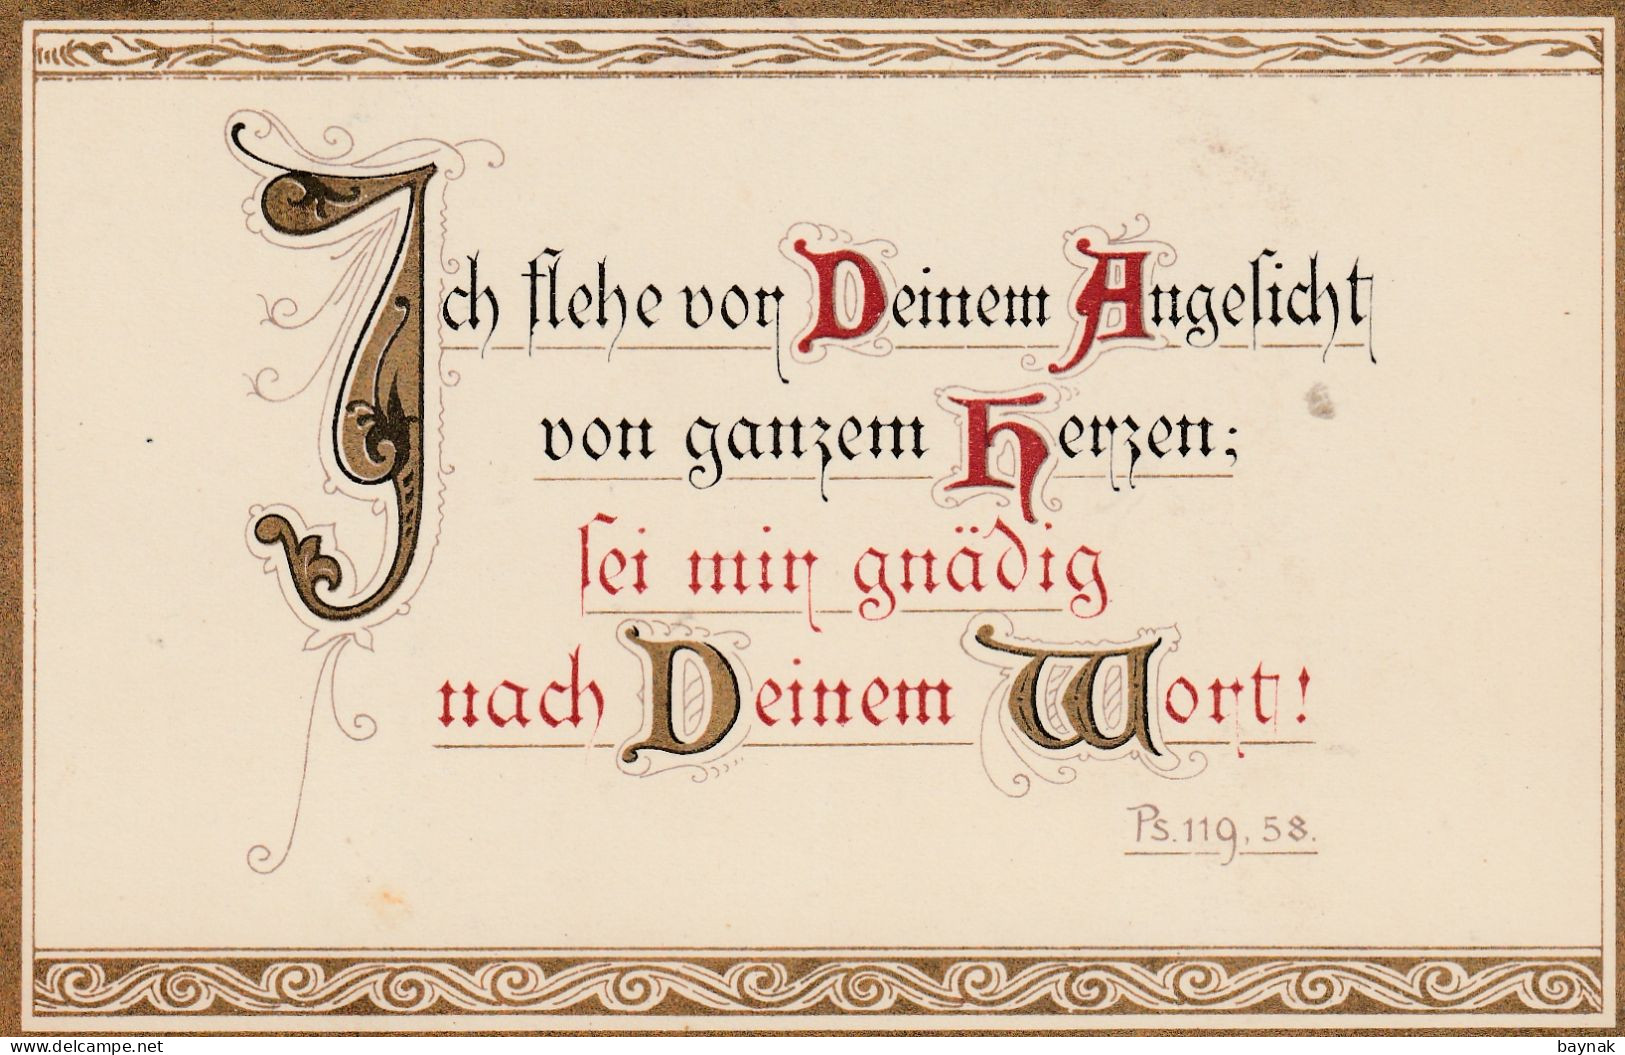 Ich flehe vor Deinem Angesicht
von ganzem Herzen;
sei mir gnädig
nach Deinem Wort!
Ps. 119, 58.
www.delcampe.net
baynak